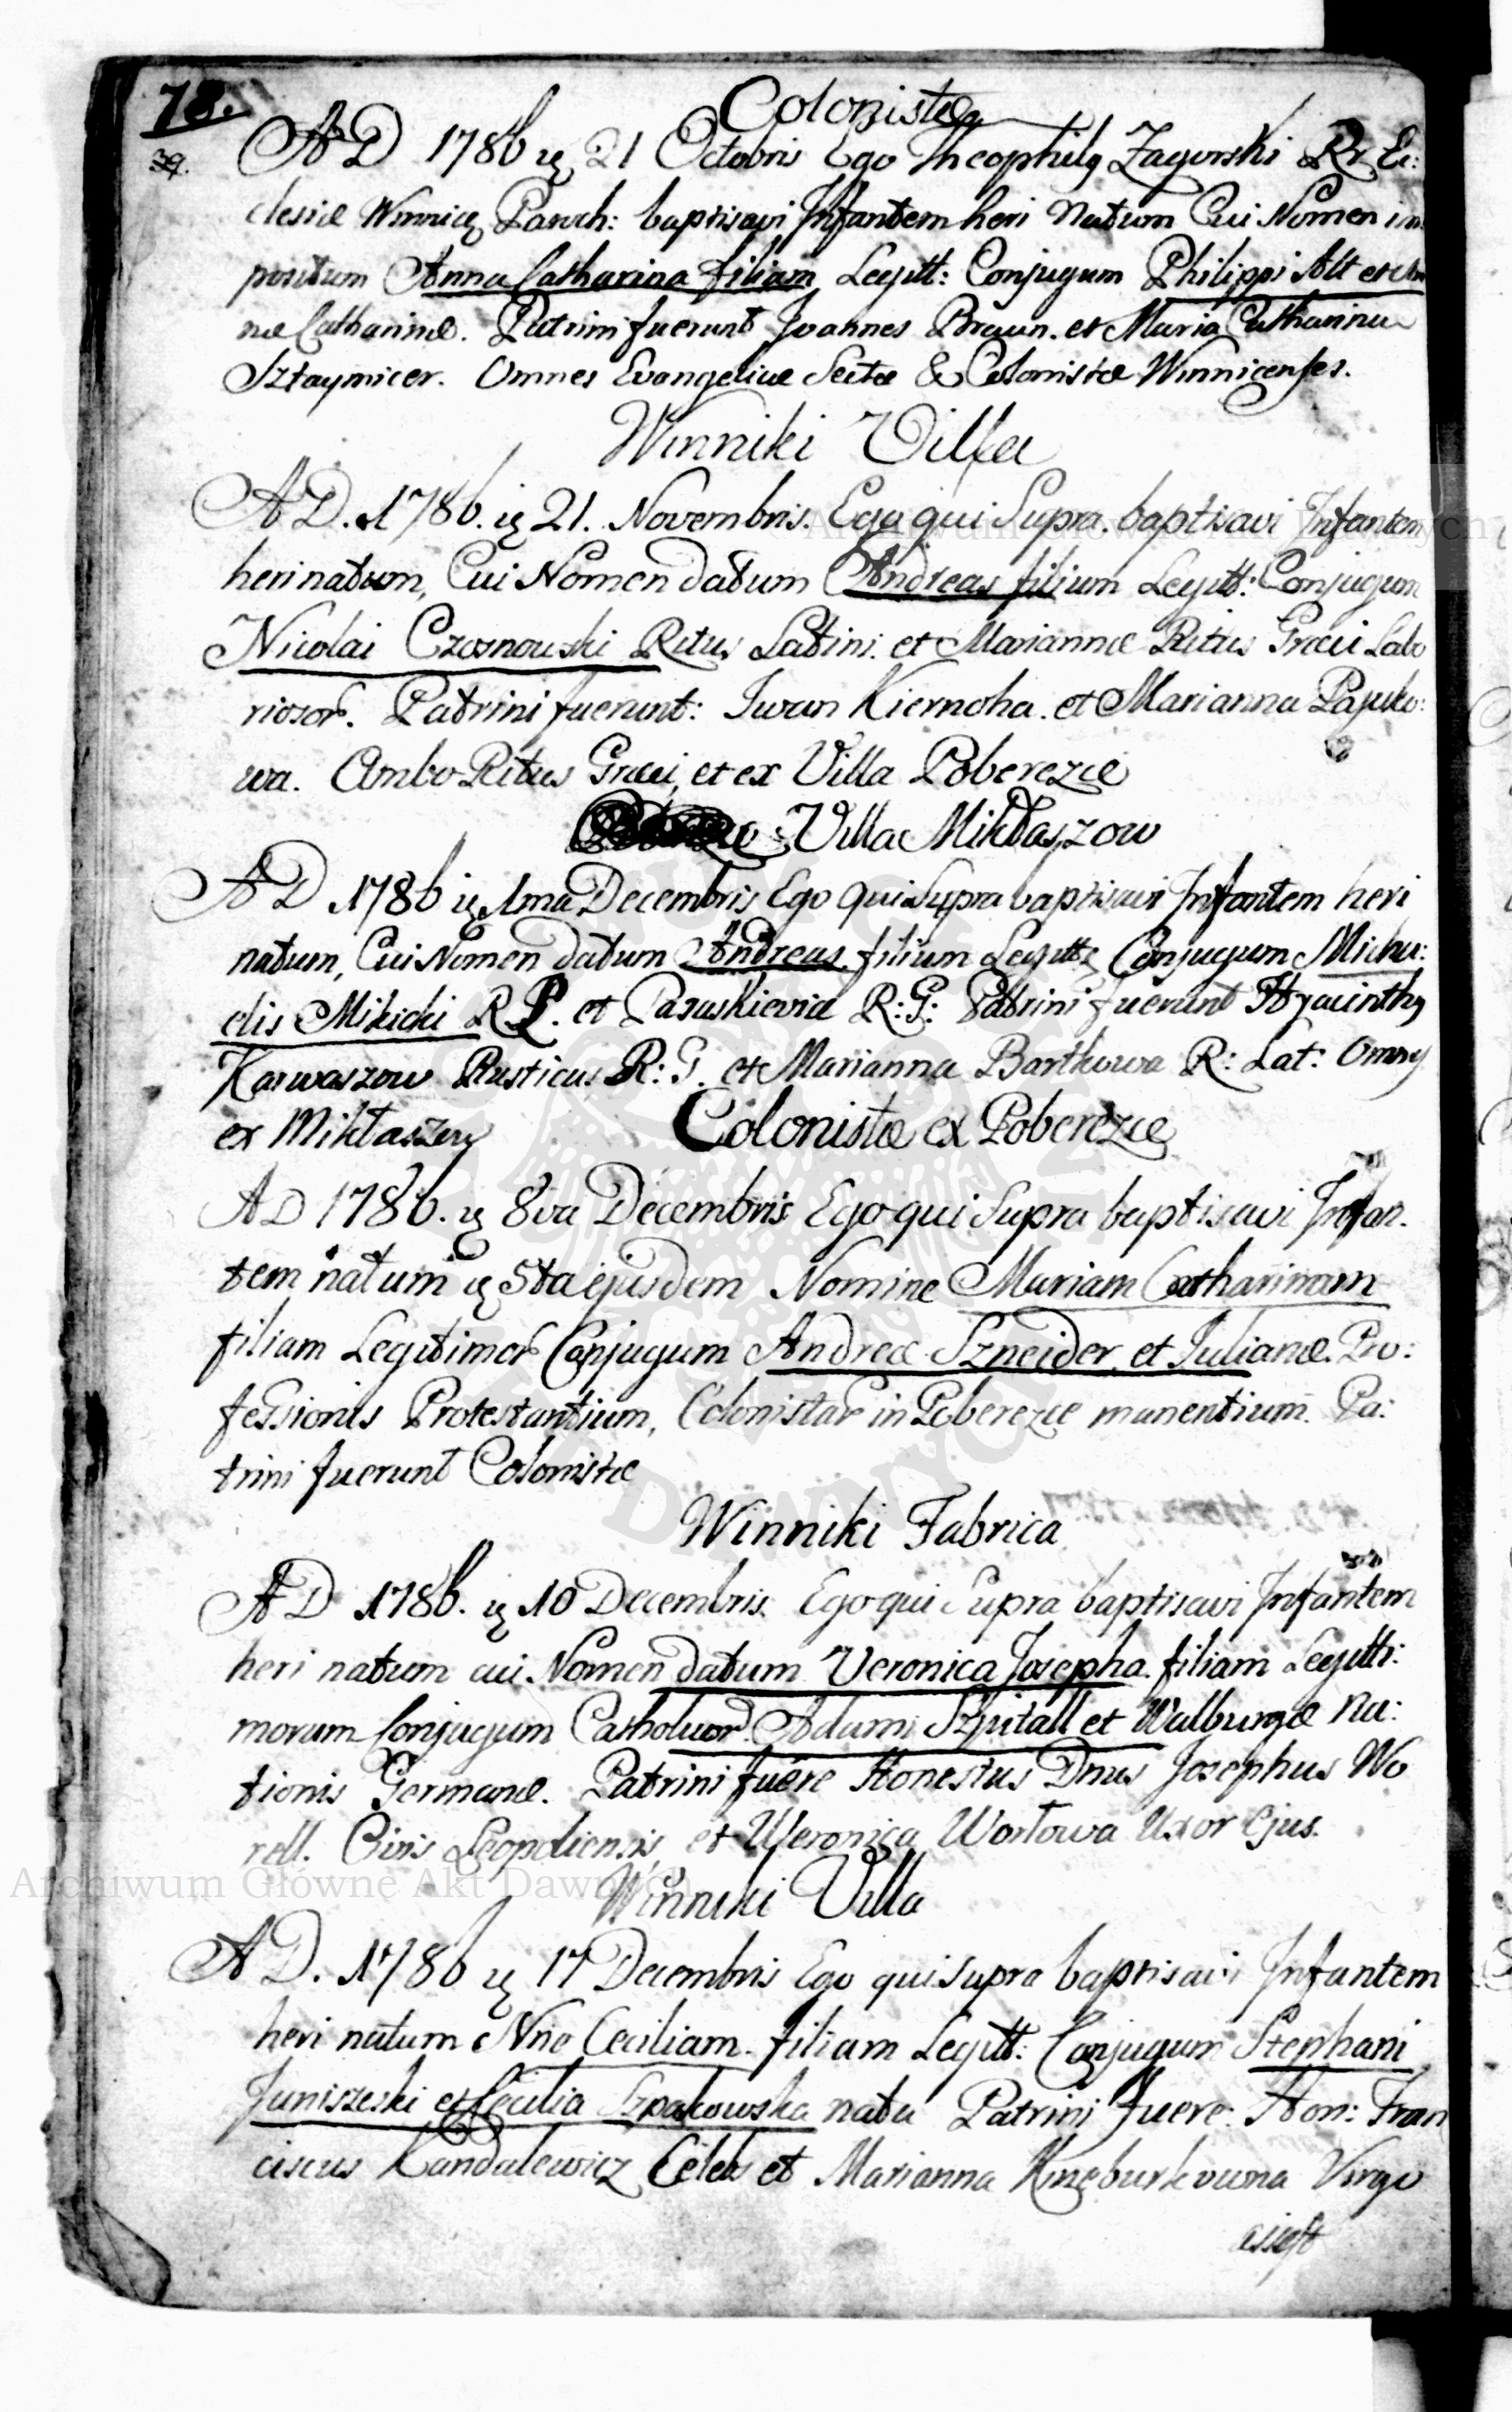 78.
39.
Colonistæ
AD 1786 ię 21 Octobris Ego Theophilꝯ Zagorski Rr Ec:
clesiæ Winnicę Paroch: baptisavi Infantem heri Natum Cui Nomen im
positum Anna Catharina filiam Legitt: Conjugum Philippi Alt et An
næ Catharinæ. Patrini fuerunt Joannes Braun. et Maria Catharina
Sztaymicer. Omnes Evangelicæ Sectæ & Colonistæ Winnicenses.
Winniki Villa
AD. 1786. ię 21. Novembris. Ego qui Supra. baptisavi Infantem
heri natum, Cui Nomen datum Andreas filium Legitt: Conjugum
Nicolai Czosnowski Ritus Latini. et Mariannæ Ritus Græci Labo
riosor. Patrini fuerunt: Iwan Kiernoha. et Marianna Papuko:
wa. Ambo Ritus Græci, et ex Villa Poberezæ
Villa Mikłaszow
AD 1786 ię 1ma Decembris Ego qui Supra baptisavi Infantem heri
natum, Cui Nomen datum Andreas filium Legitt: Conjugum Micha:
elis Mikicki R P. et Paraskieviæ R: G: Patrini fuerunt Hyacinthꝯ
Karwaszow Rusticus R: G. et Marianna Bartkowa R: Lat: Omnes
ex Mikłaszow
Colonistæ ex Poberezæ
AD 1786. ię 8va Decembris Ego qui Supra baptisavi Infan.
tem natum ię 5ta ejusdem Nomine Mariam Catharinam
filiam Legitimor Conjugum Andreæ Szneider et Julianæ. Pro:
fessionis Protestantium, Colonistar in Poberezæ manentium. Pa:
trini fuerunt Colonistæ
Winniki Fabrica
AD 1786. ię 10 Decembris Ego qui Supra baptisavi Infantem
heri natum cui Nomen datum Veronica Josepha. filiam Legitti:
morum Conjugum Catholicor. Adami Szpitall et Walburgæ Na:
tionis Germanæ. Patrini fuere Honestus Dnus Josephus Wo
rell. Civis Leopoliensis, et Weronica Worlowa Uxor Ejus.
Winniki Villa
AD. 1786 ię 17 Decembris Ego qui supra baptisavi Infantem
heri natum Nne Ceciliam. filiam Legitt: Conjugum Stephani
Juniszeski et Cecilia Szpakowska nata Patrini fuere: Hon: Fran
ciscus Kandalewicz Celebs et Marianna Virgo
Archiwum Główne Akt Dawnych